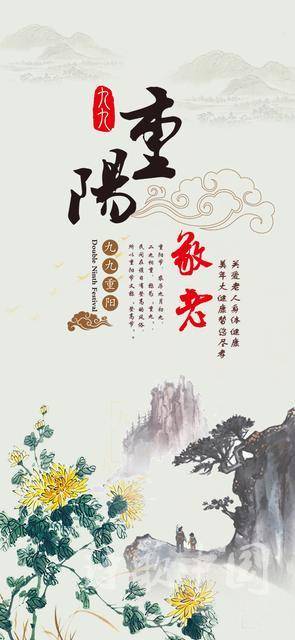 九九
重陽
敬老
九九重阳
Double Ninth Festival
重阳节,农历九月初九
二九相重,称为"重九"
民间在该日有登高的风俗
所以重阳节又称"登高节"。
关爱老人身体健康